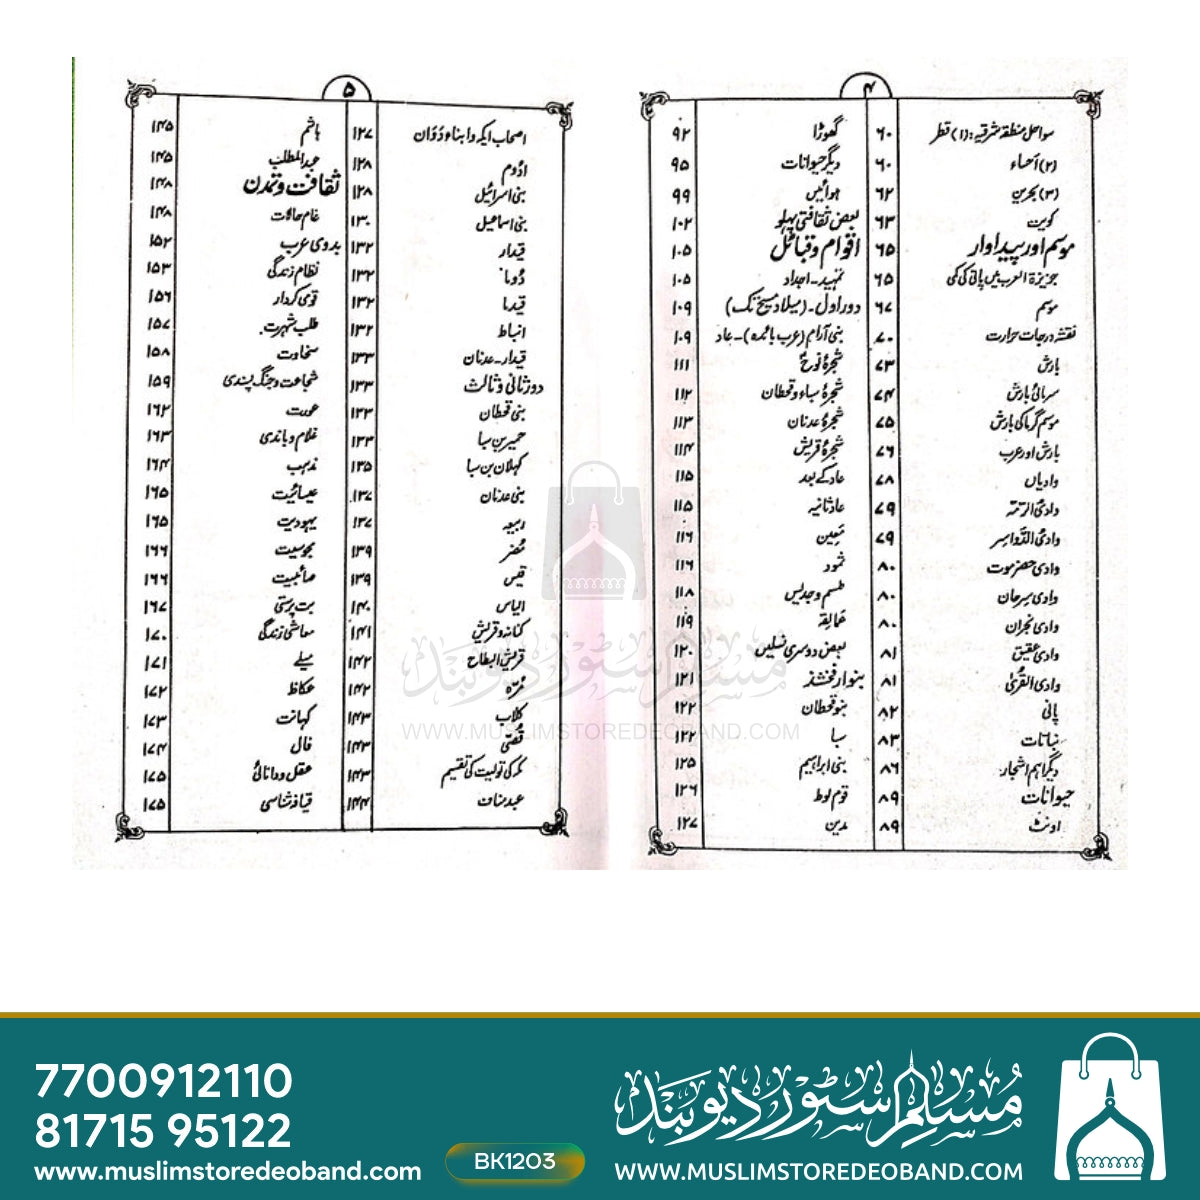 ۴
سواحل منطقہ شرقیہ: (۱) قطر ۶۰
(۲) احساء ۶۰
(۳) بحرین ۶۲
کویت ۶۳
موسم اور پیداوار ۶۵
جزیرۃ العرب میں پانی کی کمی ۶۵
موسم ۶۷
نقشہ درجات حرارت ۷۰
بارش ۷۳
سرمائی بارش ۷۴
موسم گرما کی بارش ۷۵
بارش اور عرب ۷۶
وادیاں ۷۸
وادئ الرّمہ ۷۹
وادئ الدّواسر ۷۹
وادئ حضرموت ۸۰
وادئ سرحان ۸۰
وادئ نجران ۸۰
وادئ عقیق ۸۱
وادئ القریٰ ۸۱
پانی ۸۲
نباتات ۸۳
دیگر اہم اشجار ۸۶
حیوانات ۸۹
اونٹ ۸۹
گھوڑا ۹۲
دیگر حیوانات ۹۵
ہوائیں ۹۹
بعض ثقافتی پہلو ۱۰۲
اقوام و قبائل ۱۰۵
تمہید - اجداد ۱۰۵
دور اول - (میلاد مسیح تک) ۱۰۹
بنی آرام (عرب بائدہ) - عاد ۱۰۹
شجرۂ نوح ۱۱۱
شجرۂ سباء و قحطان ۱۱۲
شجرۂ عدنان ۱۱۳
شجرۂ قریش ۱۱۴
عاد کے بعد ۱۱۵
عاد ثانیہ ۱۱۵
معین ۱۱۶
ثمود ۱۱۶
طسم و جدیس ۱۱۸
عمالقہ ۱۱۹
بعض دوسری نسلیں ۱۲۰
بنو ارفخشد ۱۲۱
بنو قحطان ۱۲۲
سبا ۱۲۲
بنی ابراہیم ۱۲۵
قوم لوط ۱۲۶
مدین ۱۲۷
۵
اصحاب ایکہ و ابناء دوان ۱۲۷
ادوم ۱۲۸
بنی اسرائیل ۱۲۸
بنی اسماعیل ۱۳۰
قیدار ۱۳۲
دوما ۱۳۲
قیدما ۱۳۲
انباط ۱۳۲
قیدار - عدنان ۱۳۳
دور ثانی و ثالث ۱۳۳
بنی قحطان ۱۳۳
حمیر بن سبا ۱۳۳
کہلان بن سبا ۱۳۵
بنی عدنان ۱۳۷
ربیعہ ۱۳۷
مضر ۱۳۹
قیس ۱۳۹
الیاس ۱۴۰
کنانہ و قریش ۱۴۱
قریش البطاح ۱۴۲
مرّہ ۱۴۲
کلاب ۱۴۳
قصّی ۱۴۳
مکہ کی تولیت کی تقسیم ۱۴۳
عبد مناف ۱۴۴
ہاشم ۱۴۵
عبد المطلب ۱۴۵
ثقافت و تمدن ۱۴۸
عام حالات ۱۴۸
بدوی عرب ۱۵۲
نظام زندگی ۱۵۳
قومی کردار ۱۵۶
طلب شہرت ۱۵۷
سخاوت ۱۵۸
شجاعت و جنگ پسندی ۱۵۹
عورت ۱۶۲
غلام و باندی ۱۶۳
مذہب ۱۶۴
عیسائیت ۱۶۵
یہودیت ۱۶۵
مجوسیت ۱۶۶
صائبیت ۱۶۶
بت پرستی ۱۶۷
معاشی زندگی ۱۷۰
میلے ۱۷۱
عکاظ ۱۷۲
کہانت ۱۷۳
فال ۱۷۴
عقل و دانائی ۱۷۵
قیافہ شناسی ۱۷۵
مسلم سٹور دیوبند
WWW.MUSLIMSTOREDEOBAND.COM
7700912110
81715 95122
www.muslimstoredeoband.com
BK1203
مسلم سٹور دیوبند
WWW.MUSLIMSTOREDEOBAND.COM